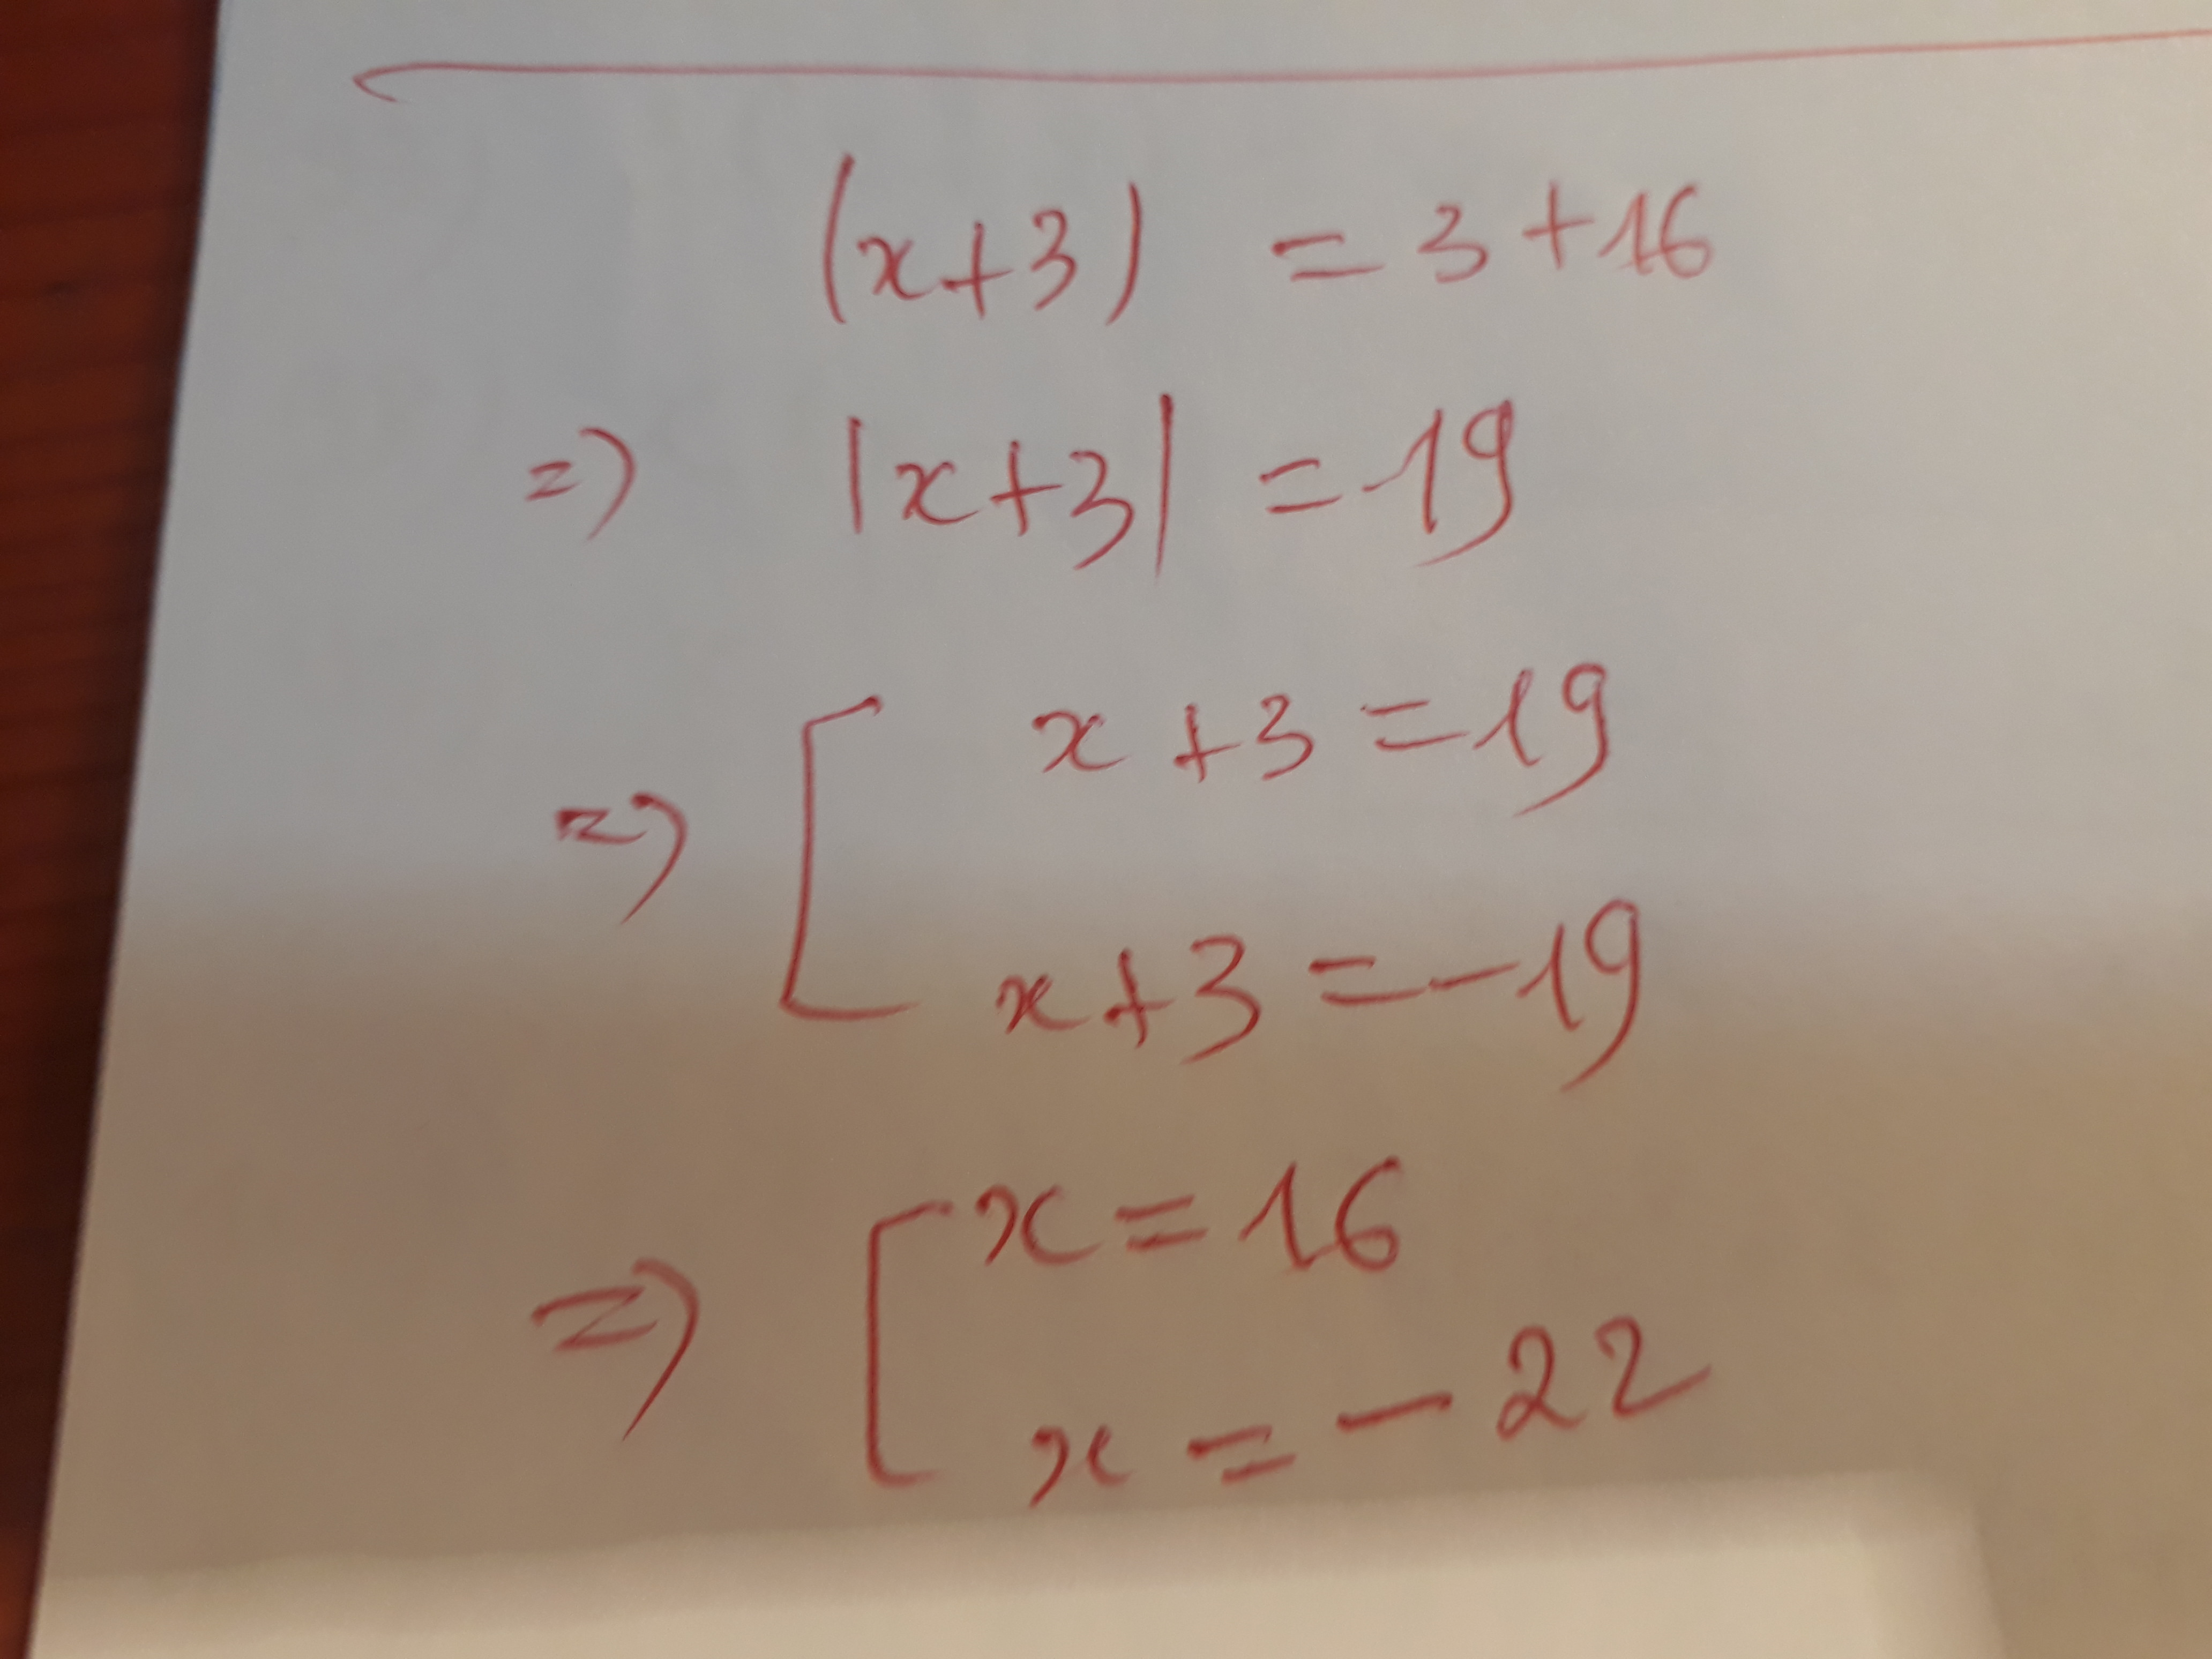 (x+3) = 3+16
=> |x+3| = 19
=> [ x+3 = 19
x+3 = -19
=> [ x = 16
x = -22